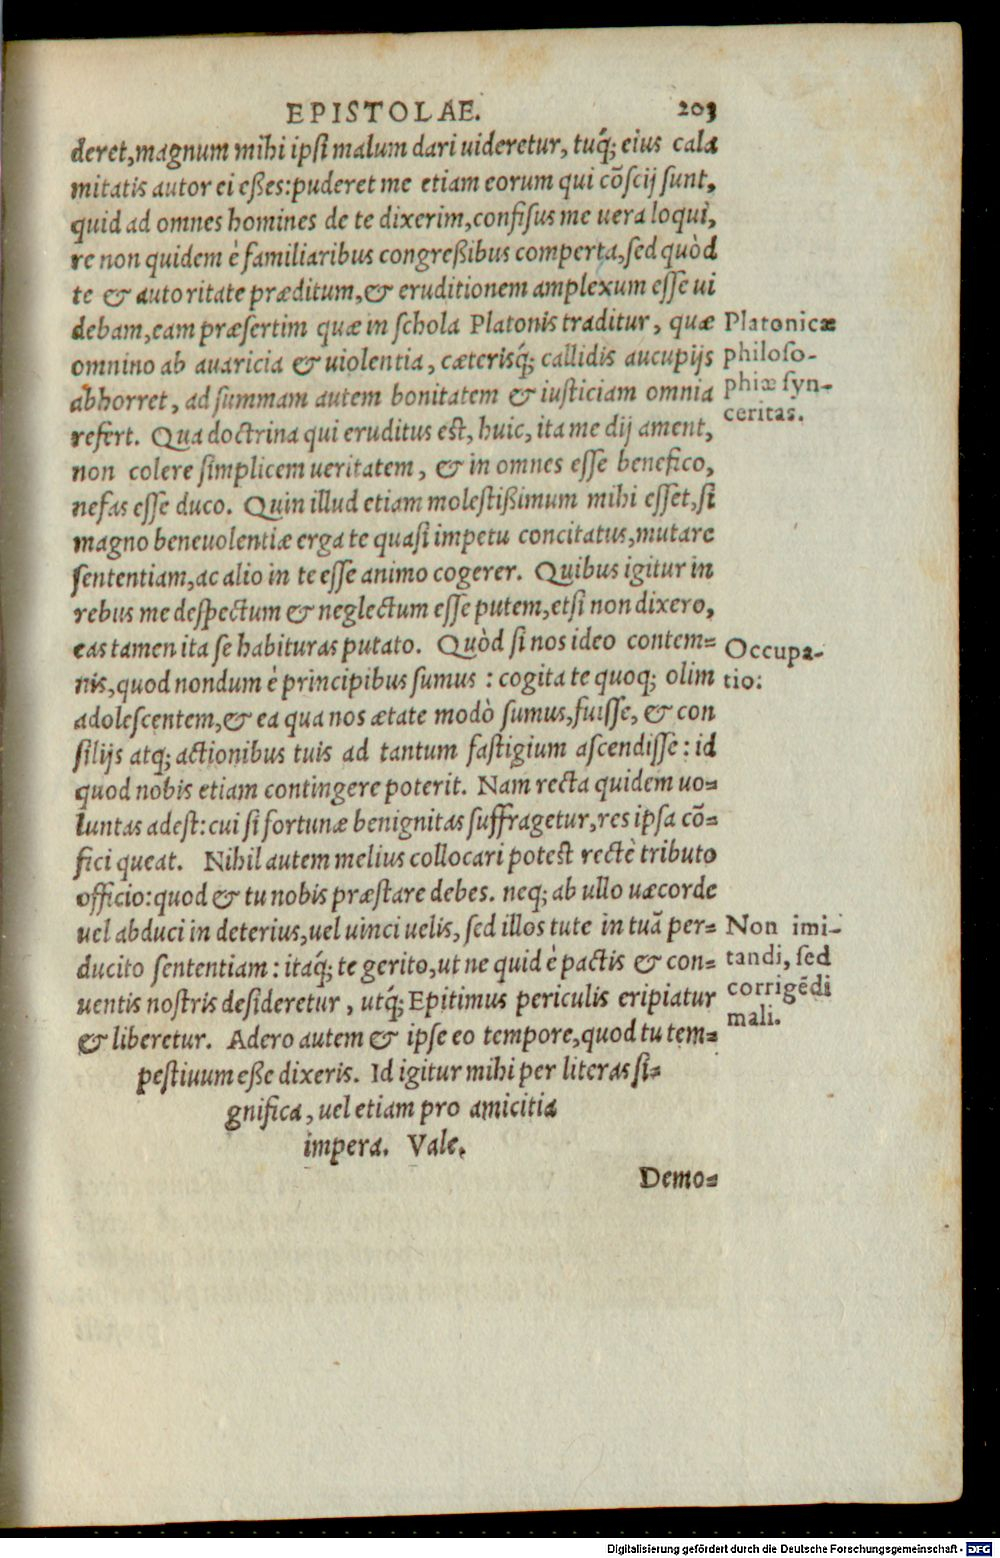 EPISTOLAE. 203
deret, magnum mihi ipsi malum dari uideretur, tuq́; eius cala
mitatis autor ei eßes: puderet me etiam eorum qui cõscij sunt,
quid ad omnes homines de te dixerim, confisus me uera loqui,
re non quidem è familiaribus congreßibus comperta, sed quòd
te & autoritate præditum, & eruditionem amplexum esse ui
debam, eam præsertim quæ in schola Platonis traditur, quæ
omnino ab auaricia & uiolentia, cæterisq́; callidis aucupijs
abhorret, ad summam autem bonitatem & iusticiam omnia
refert. Qua doctrina qui eruditus est, huic, ita me dij ament,
non colere simplicem ueritatem, & in omnes esse benefico,
nefas esse duco. Quin illud etiam molestißimum mihi esset, si
magno beneuolentiæ erga te quasi impetu concitatus, mutare
sententiam, ac alio in te esse animo cogerer. Quibus igitur in
rebus me despectum & neglectum esse putem, etsi non dixero,
eas tamen ita se habituras putato. Quòd si nos ideo contem=
nis, quod nondum è principibus sumus: cogita te quoq; olim
adolescentem, & ea qua nos ætate modò sumus, fuisse, & con
silijs atq; actionibus tuis ad tantum fastigium ascendisse: id
quod nobis etiam contingere poterit. Nam recta quidem uo=
luntas adest: cui si fortunæ benignitas suffragetur, res ipsa cõ=
fici queat. Nihil autem melius collocari potest rectè tributo
officio: quod & tu nobis præstare debes. neq; ab ullo uæcorde
uel abduci in deterius, uel uinci uelis, sed illos tute in tuã per=
ducito sententiam: itaq́; te gerito, ut ne quid è pactis & con=
uentis nostris desideretur, utq́; Epitimus periculis eripiatur
& liberetur. Adero autem & ipse eo tempore, quod tu tem=
pestiuum eße dixeris. Id igitur mihi per literas si=
gnifica, uel etiam pro amicitia
impera. Vale.
Demo=
Platonicæ
philoso-
phiæ syn-
ceritas.
Occupa-
tio:
Non imi-
tandi, sed
corrigẽdi
mali.
Digitalisierung gefördert durch die Deutsche Forschungsgemeinschaft - DFG